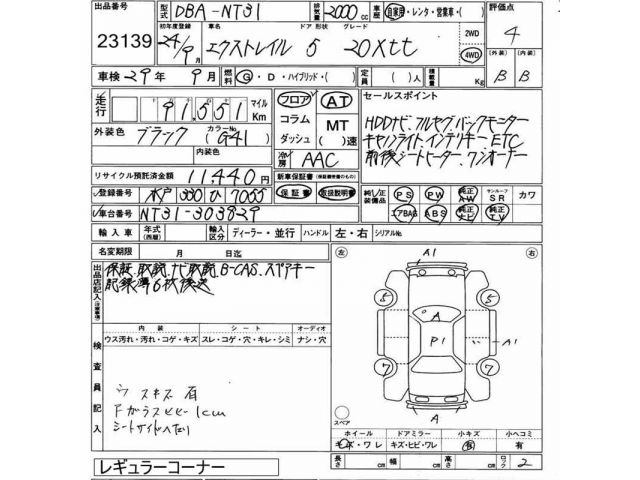 出品番号 型式 DBA-NT31 排気量 2000 cc 車歴 自家用・レンタ・営業車・( ) 評価点
23139 初年度登録 24/9月 車名 エクストレイル ドア形状 5 グレード 20Xtt 2WD 4WD 4
車検 29年 9月 燃料 G・D・ハイブリッド・( ) 定員 ( )人 積載量 Kg (外装) B (内装) B
走行 91,551 マイル Km フロア AT セールスポイント
外装色 ブラック カラーNo (G41) コラム MT HDDナビ.フルセグ.バックモニター
内装色 ダッシュ ( )速 キセノンライト.インテリキー.ETC
冷房 AAC 前後シートヒーター.ワンオーナー
リサイクル預託済金額 11440円 新車保証書(保証書継続有効のもの)
登録番号 水戸 330 ひ 7055 保証書 取扱説明書 純/正装備品 PS PW 純正AW サンルーフSR カワ
車台番号 NT31-303829 エアBAG ABS 純正ナビ 純正TV
輸入車 年式(西暦) 輸入区分 ディーラー・並行 ハンドル 左・右 シリアルNo.
名変期限 月 日迄
出品店記入(注意事項) 保証.取説.ナビ取説.B-CAS.スペアキー
記録簿6枚後送
左 A1 右
5 5
A
P1 A1
7 7
A
スペア
検査員記入
内装 シート オーディオ
ウス汚れ・汚れ・コゲ・キズ スレ・コゲ・穴・キレ・シミ ナシ・穴
ウスキズ有
Fガラスヒビ1cm
シートサイドヘたり
ホイール ドアミラー 小キズ 小ヘコミ
キズ・ワレ キズ・ヒビ・ワレ 有 有
長さ cm 幅 cm 高さ cm ロック 2
レギュラーコーナー